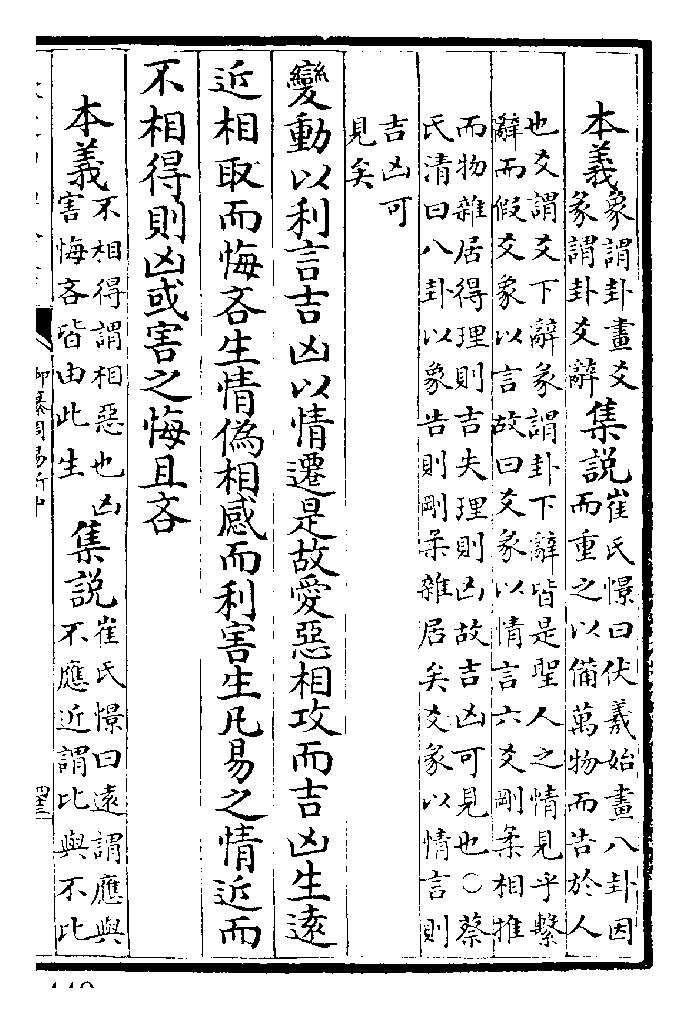 本義
象謂卦畫爻
彖謂卦爻辭
集說
崔氏憬曰伏羲始畫八卦因
而重之以備萬物而告於人
也爻謂爻下辭彖謂卦下辭皆是聖人之情見乎繫
辭而假爻彖以言故曰爻彖以情言六爻剛柔相推
而物雜居得理則吉失理則凶故吉凶可見也○蔡
氏清曰八卦以象告則剛柔雜居矣爻彖以情言則
吉凶可
見矣
變動以利言吉凶以情遷是故愛惡相攻而吉凶生遠
近相取而悔吝生情僞相感而利害生凡易之情近而
不相得則凶或害之悔且吝
本義
不相得謂相惡也凶
害悔吝皆由此生
集說
崔氏憬曰遠謂應與
不應近謂比與不比